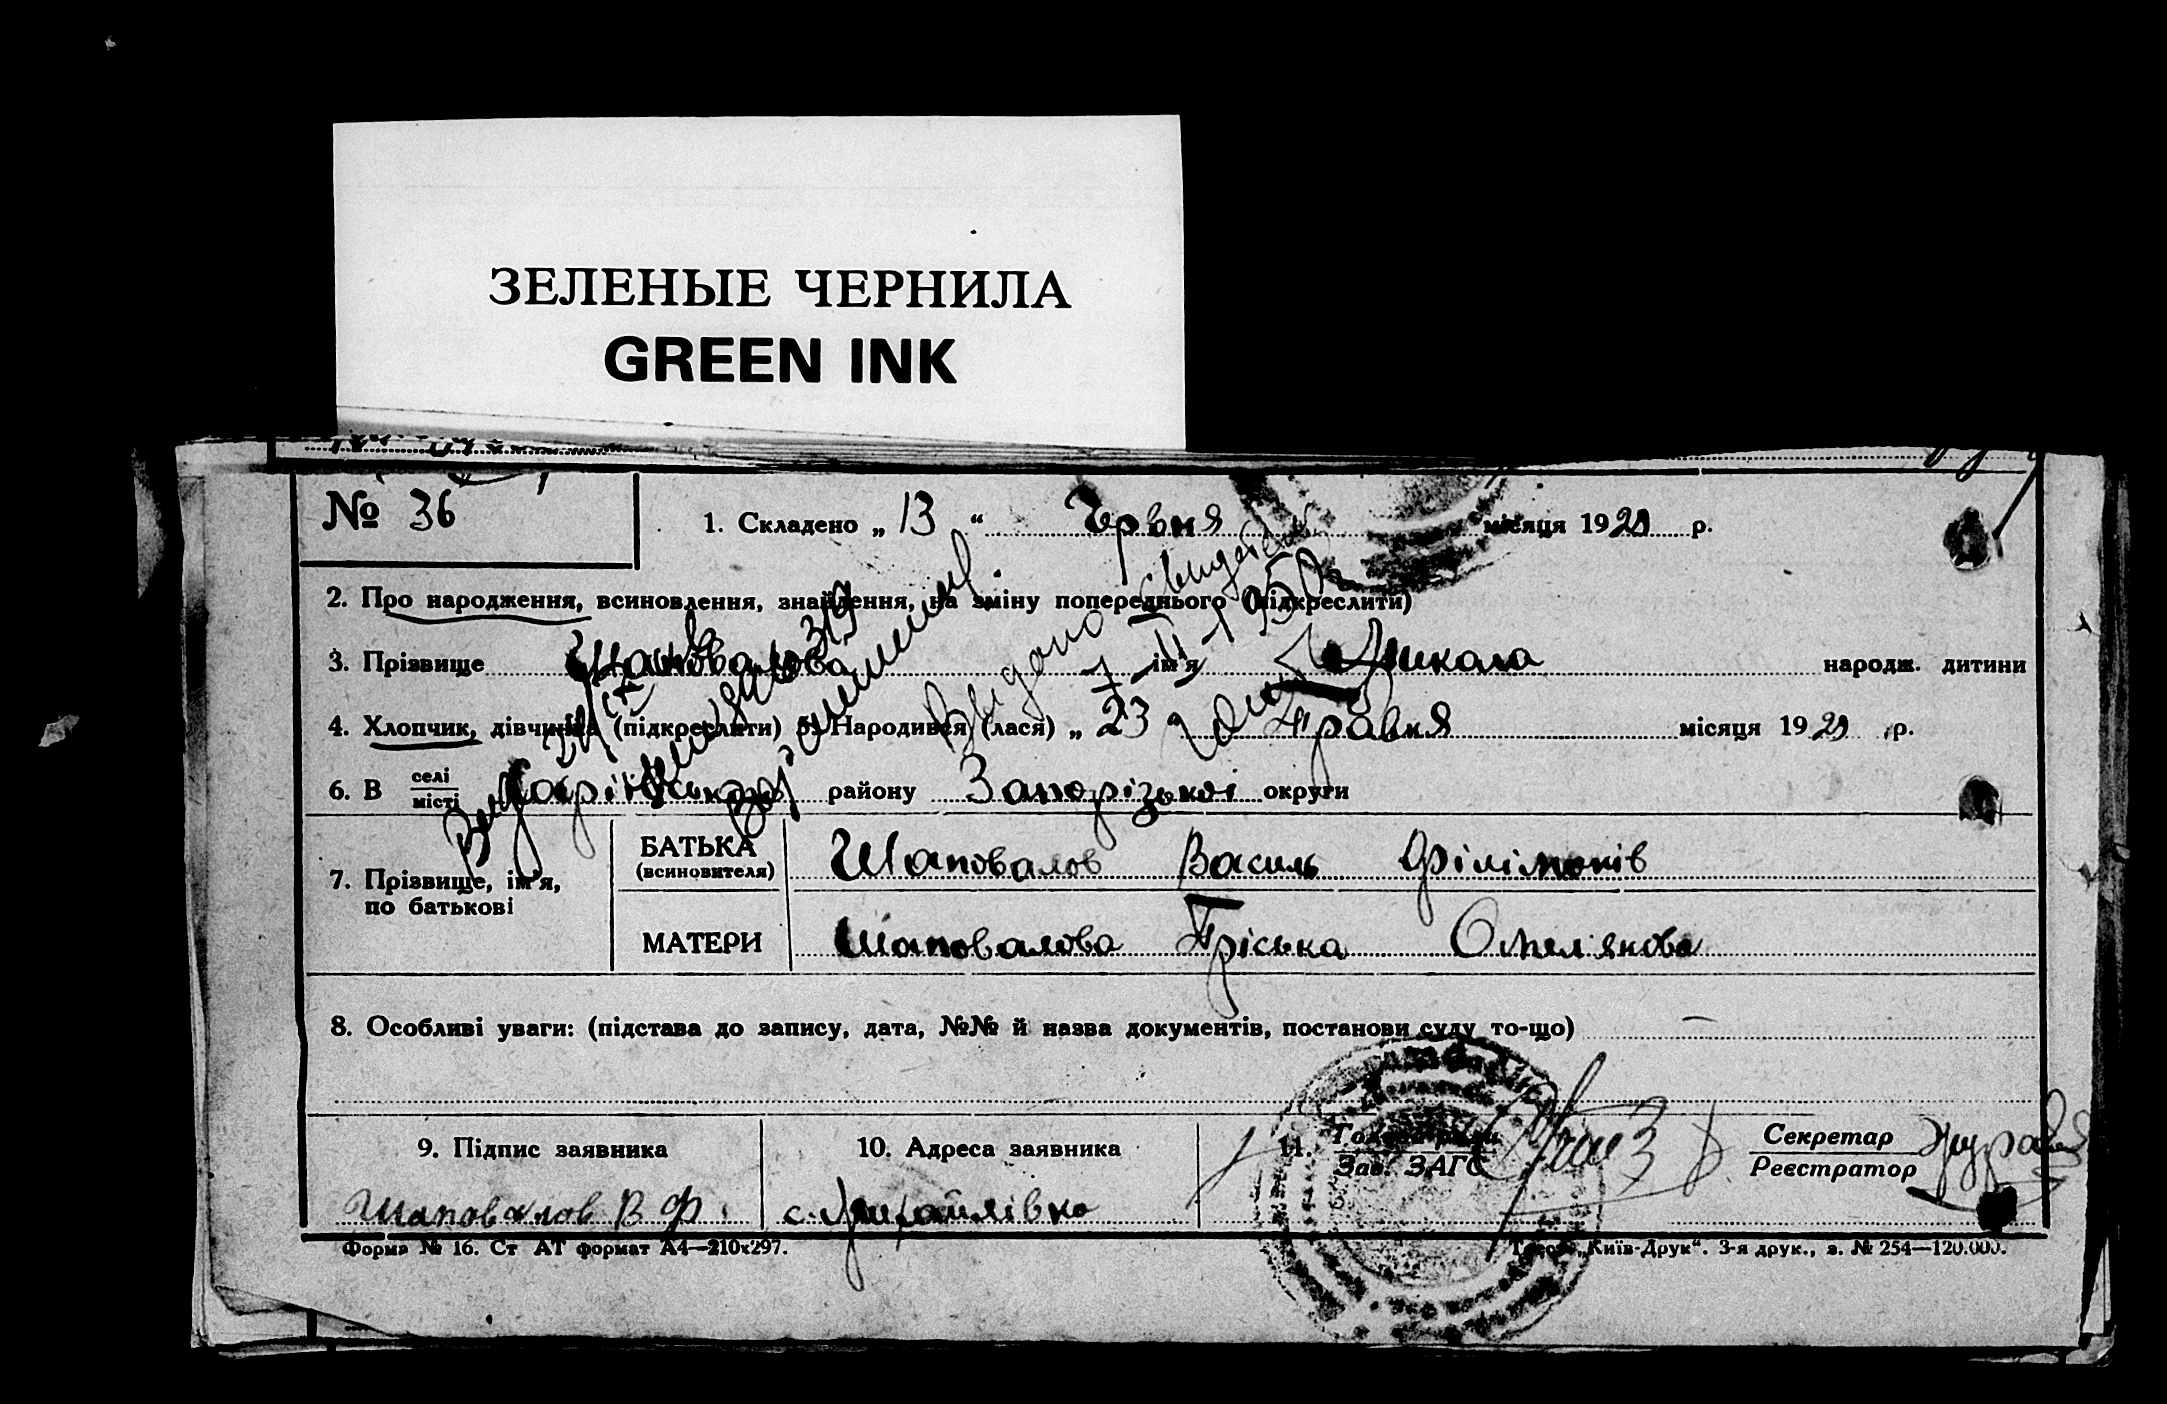 ЗЕЛЕНЫЕ ЧЕРНИЛА
GREEN INK
№ 36
1. Складено „ 13 “ Червня місяця 1929 р.
2. Про народження, всиновлення, знайдення, на зміну попереднього (підкреслити)
3. Прізвище Шаповалов ім'я Микола народж. дитини
4. Хлопчик, дівчина (підкреслити) 5. Народився (лася) „ 23 “ травня місяця 1929 р.
6. В селі місті району Запорізької округи
7. Прізвище, ім'я, по батькові
БАТЬКА (всиновителя) Шаповалов Василь Філімонів
МАТЕРИ Шаповалова Пріська Омелянова
8. Особливі уваги: (підстава до запису, дата, №№ й назва документів, постанови суду то-що) —
9. Підпис заявника 10. Адреса заявника 11. Голова ради Зав. ЗАГС Секретар Реєстратор
Шаповалов В Ф. с. Михайлівка
Форма № 16. Ст АТ формат А4—210х297. „Київ-Друк“. 3-я друк., з. № 254—120.000.
Видано